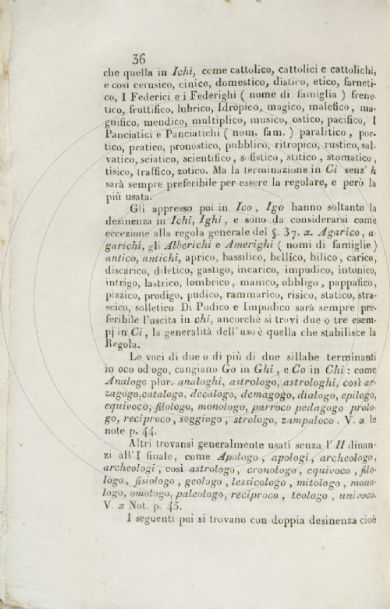 36
che quella in Ichi, come cattolico, cattolici e cattolichi,
e così cerusico, cinico, domestico, distico, etico, farneti-
co, I Federici e i Federighi ( nome di famiglia ) frene-
tico, fruttifico, lubrico, Idropico, magico, malefico, ma-
gnifico, mendico, multiplico, musico, ostico, pacifico, I
Panciatici e Panciatichi ( nom. fam. ) paralitico, por-
tico, pratico, pronostico, pubblico, ritropico, rustico, sal-
vatico, sciatico, scientifico, sofistico, stitico, stomatico,
tisico, traffico, zotico. Ma la terminazione in Ci senz' h
sarà sempre preferibile per essere la regolare, e però la
più usata.
Gli appresso poi in Ico, Igo hanno soltanto la
desinenza in Ichi, Ighi, e sono da considerarsi come
eccezione alla regola generale del §. 37. a. Agarico, a-
garichi, gli Alberichi e Amerighi ( nomi di famiglie )
antico, antichi, aprico, bassilico, bellico, bilico, carico,
discarico, diletico, gastigo, incarico, impudico, intonico,
intrigo, lastrico, lombrico, manico, obbligo, pappafico,
pizzico, prodigo, pudico, rammarico, risico, statico, stra-
scico, solletico Di Pudico e Impudico sarà sempre pre-
feribile l'uscita in chi, ancorchè si trovi due o tre esem-
pj in Ci, la generalità dell'uso è quella che stabilisce la
Regola.
Le voci di due o di più di due sillabe terminanti
in oco od ogo, cangiano Go in Ghi, e Co in Chi: come
Analogo plur. analoghi, astrologo, astrologhi, così ar-
zagogo, catalogo, decalogo, demagogo, dialogo, epilogo,
equivoco, filologo, monologo, parroco pedagogo prolo-
go, reciproco, soggiogo, strologo, zampaloco. V. a le
note p. 44.
Altri trovansi generalmente usati senza l' H dinan-
zi all'I finale, come Apologo, apologi, archeologo,
archeologi, così astrologo, cronologo, equivoco, filo-
logo, fisiologo, geologo, lessicologo, mitologo, mono-
logo, omologo, paleologo, reciproco, teologo, univoco.
V. a Not. p. 45.
I seguenti poi si trovano con doppia desinenza cioè